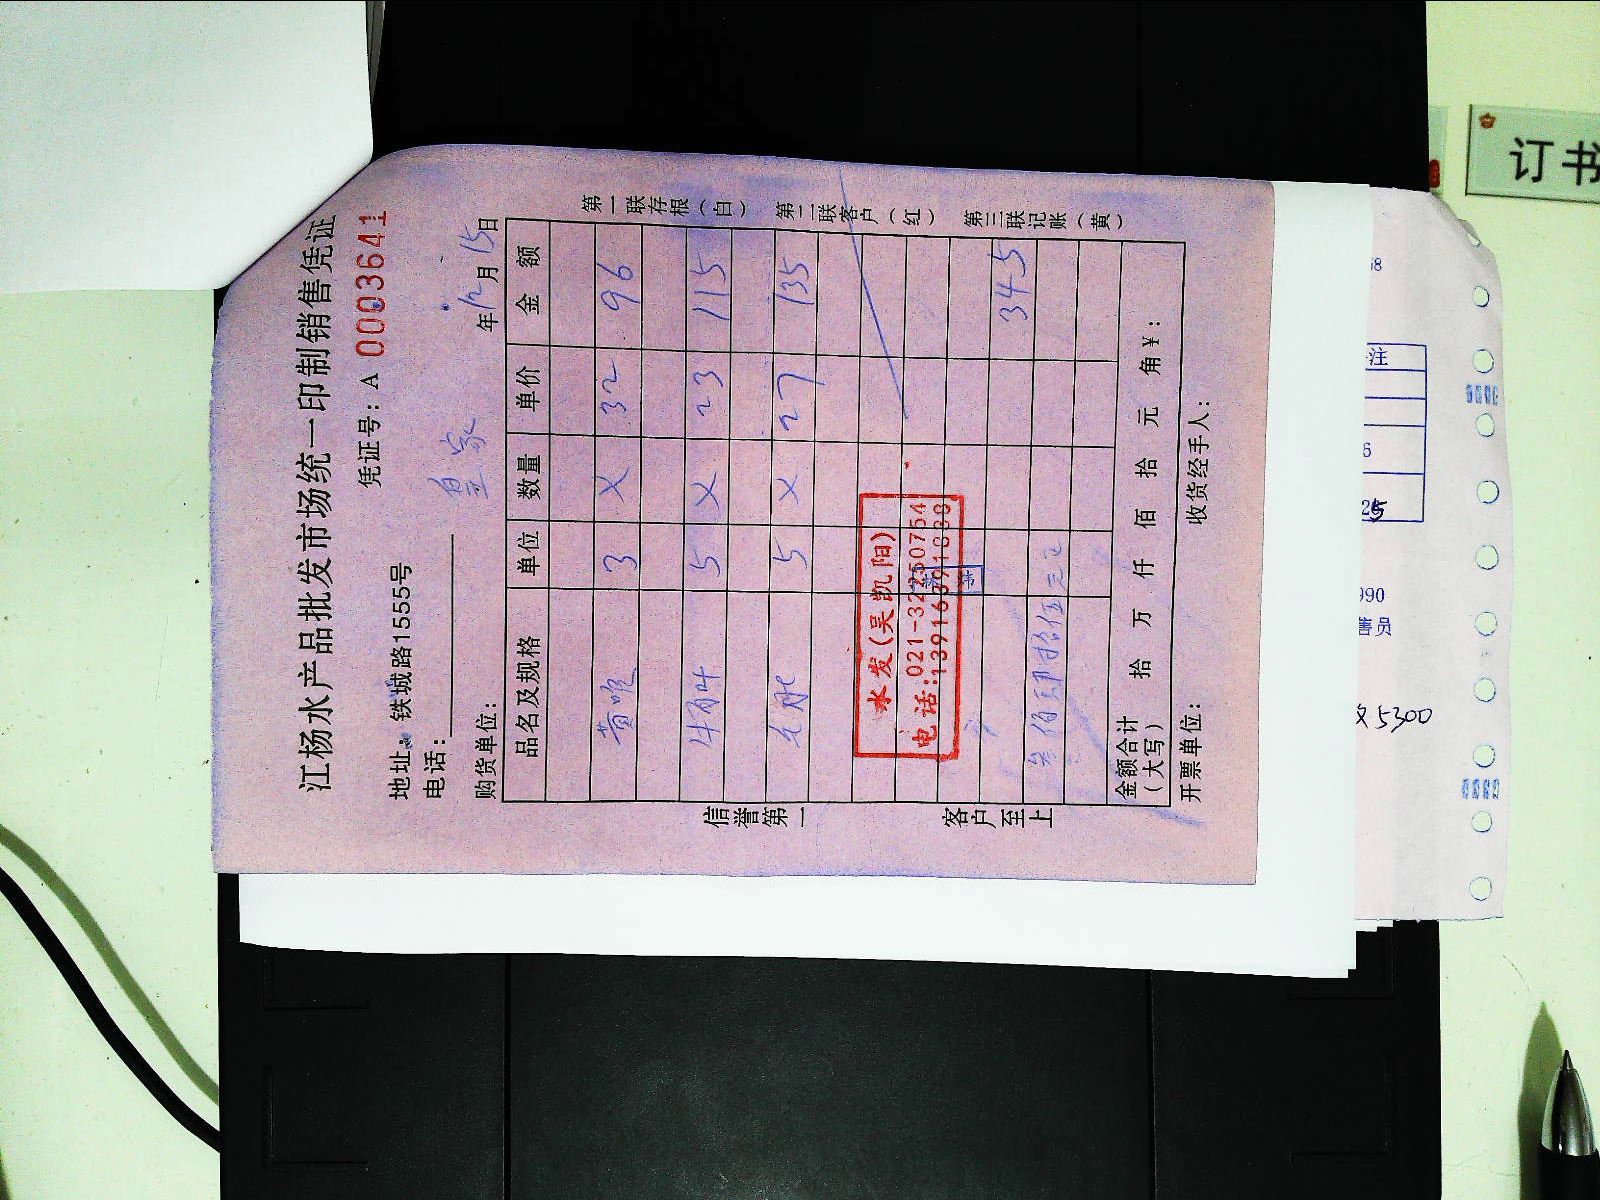 江杨水产品批发市场统一印制销售凭证
凭证号：A 0003641
地址：铁城路1555号
电话：
皇家
购货单位：
年12月15日
品名及规格 单位 数量 单价 金额
黄喉 3 X 32 96
牛百叶 5 X 23 115
毛肚 5 X 27 135
水发(吴凯阳)
电话:021-32250754
13916391838
345
叁佰肆拾伍元正
金额合计（大写） 拾 万 仟 佰 拾 元 角￥：
开票单位： 收货经手人：
第一联存根（白） 第二联客户（红） 第三联记账（黄）
信誉第一 客户至上
订书
注
990
5300